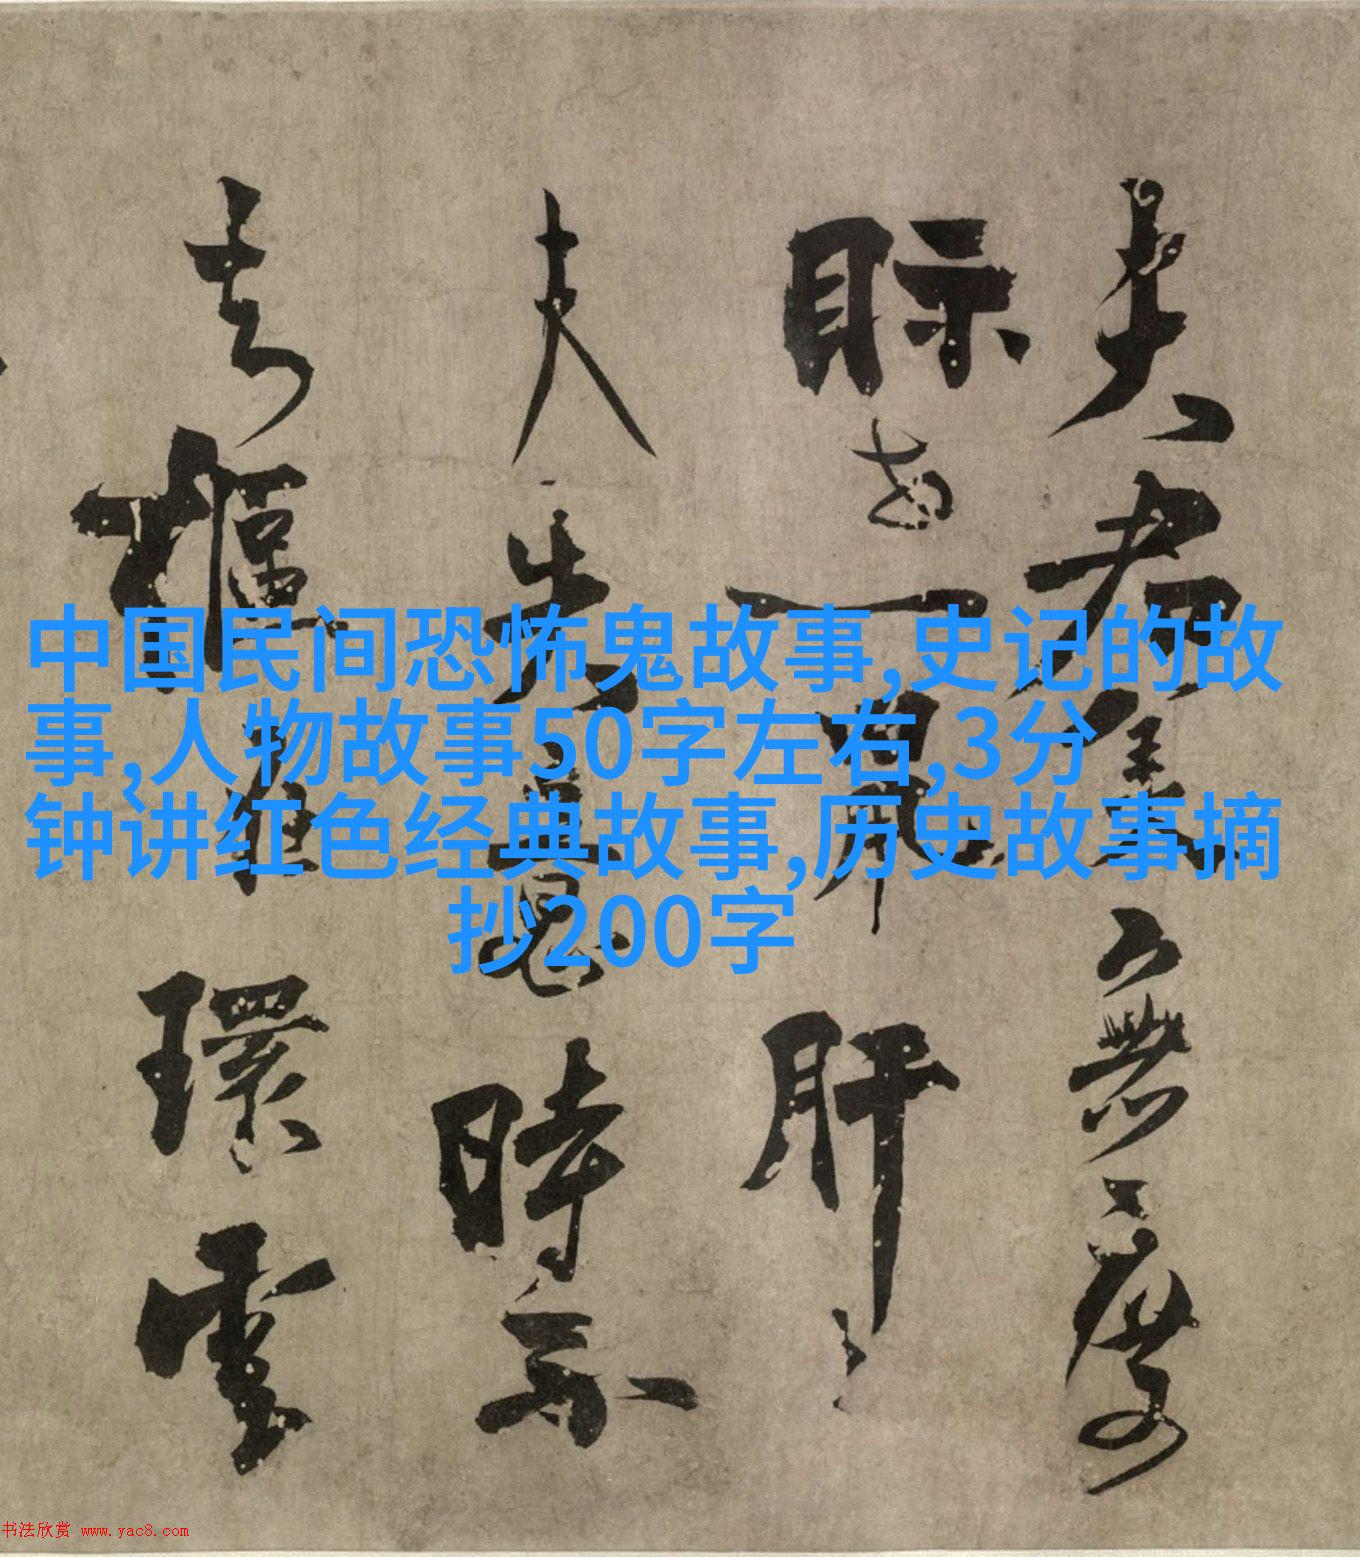 中国民间恐怖鬼故事,史记的故
事,人物故事50字左右,3分
钟讲红色经典故事,历史故事摘
抄200字
君 無 度
眎 一鼠肝
夫失 時
樞 環
书法欣赏 www.yac8.com